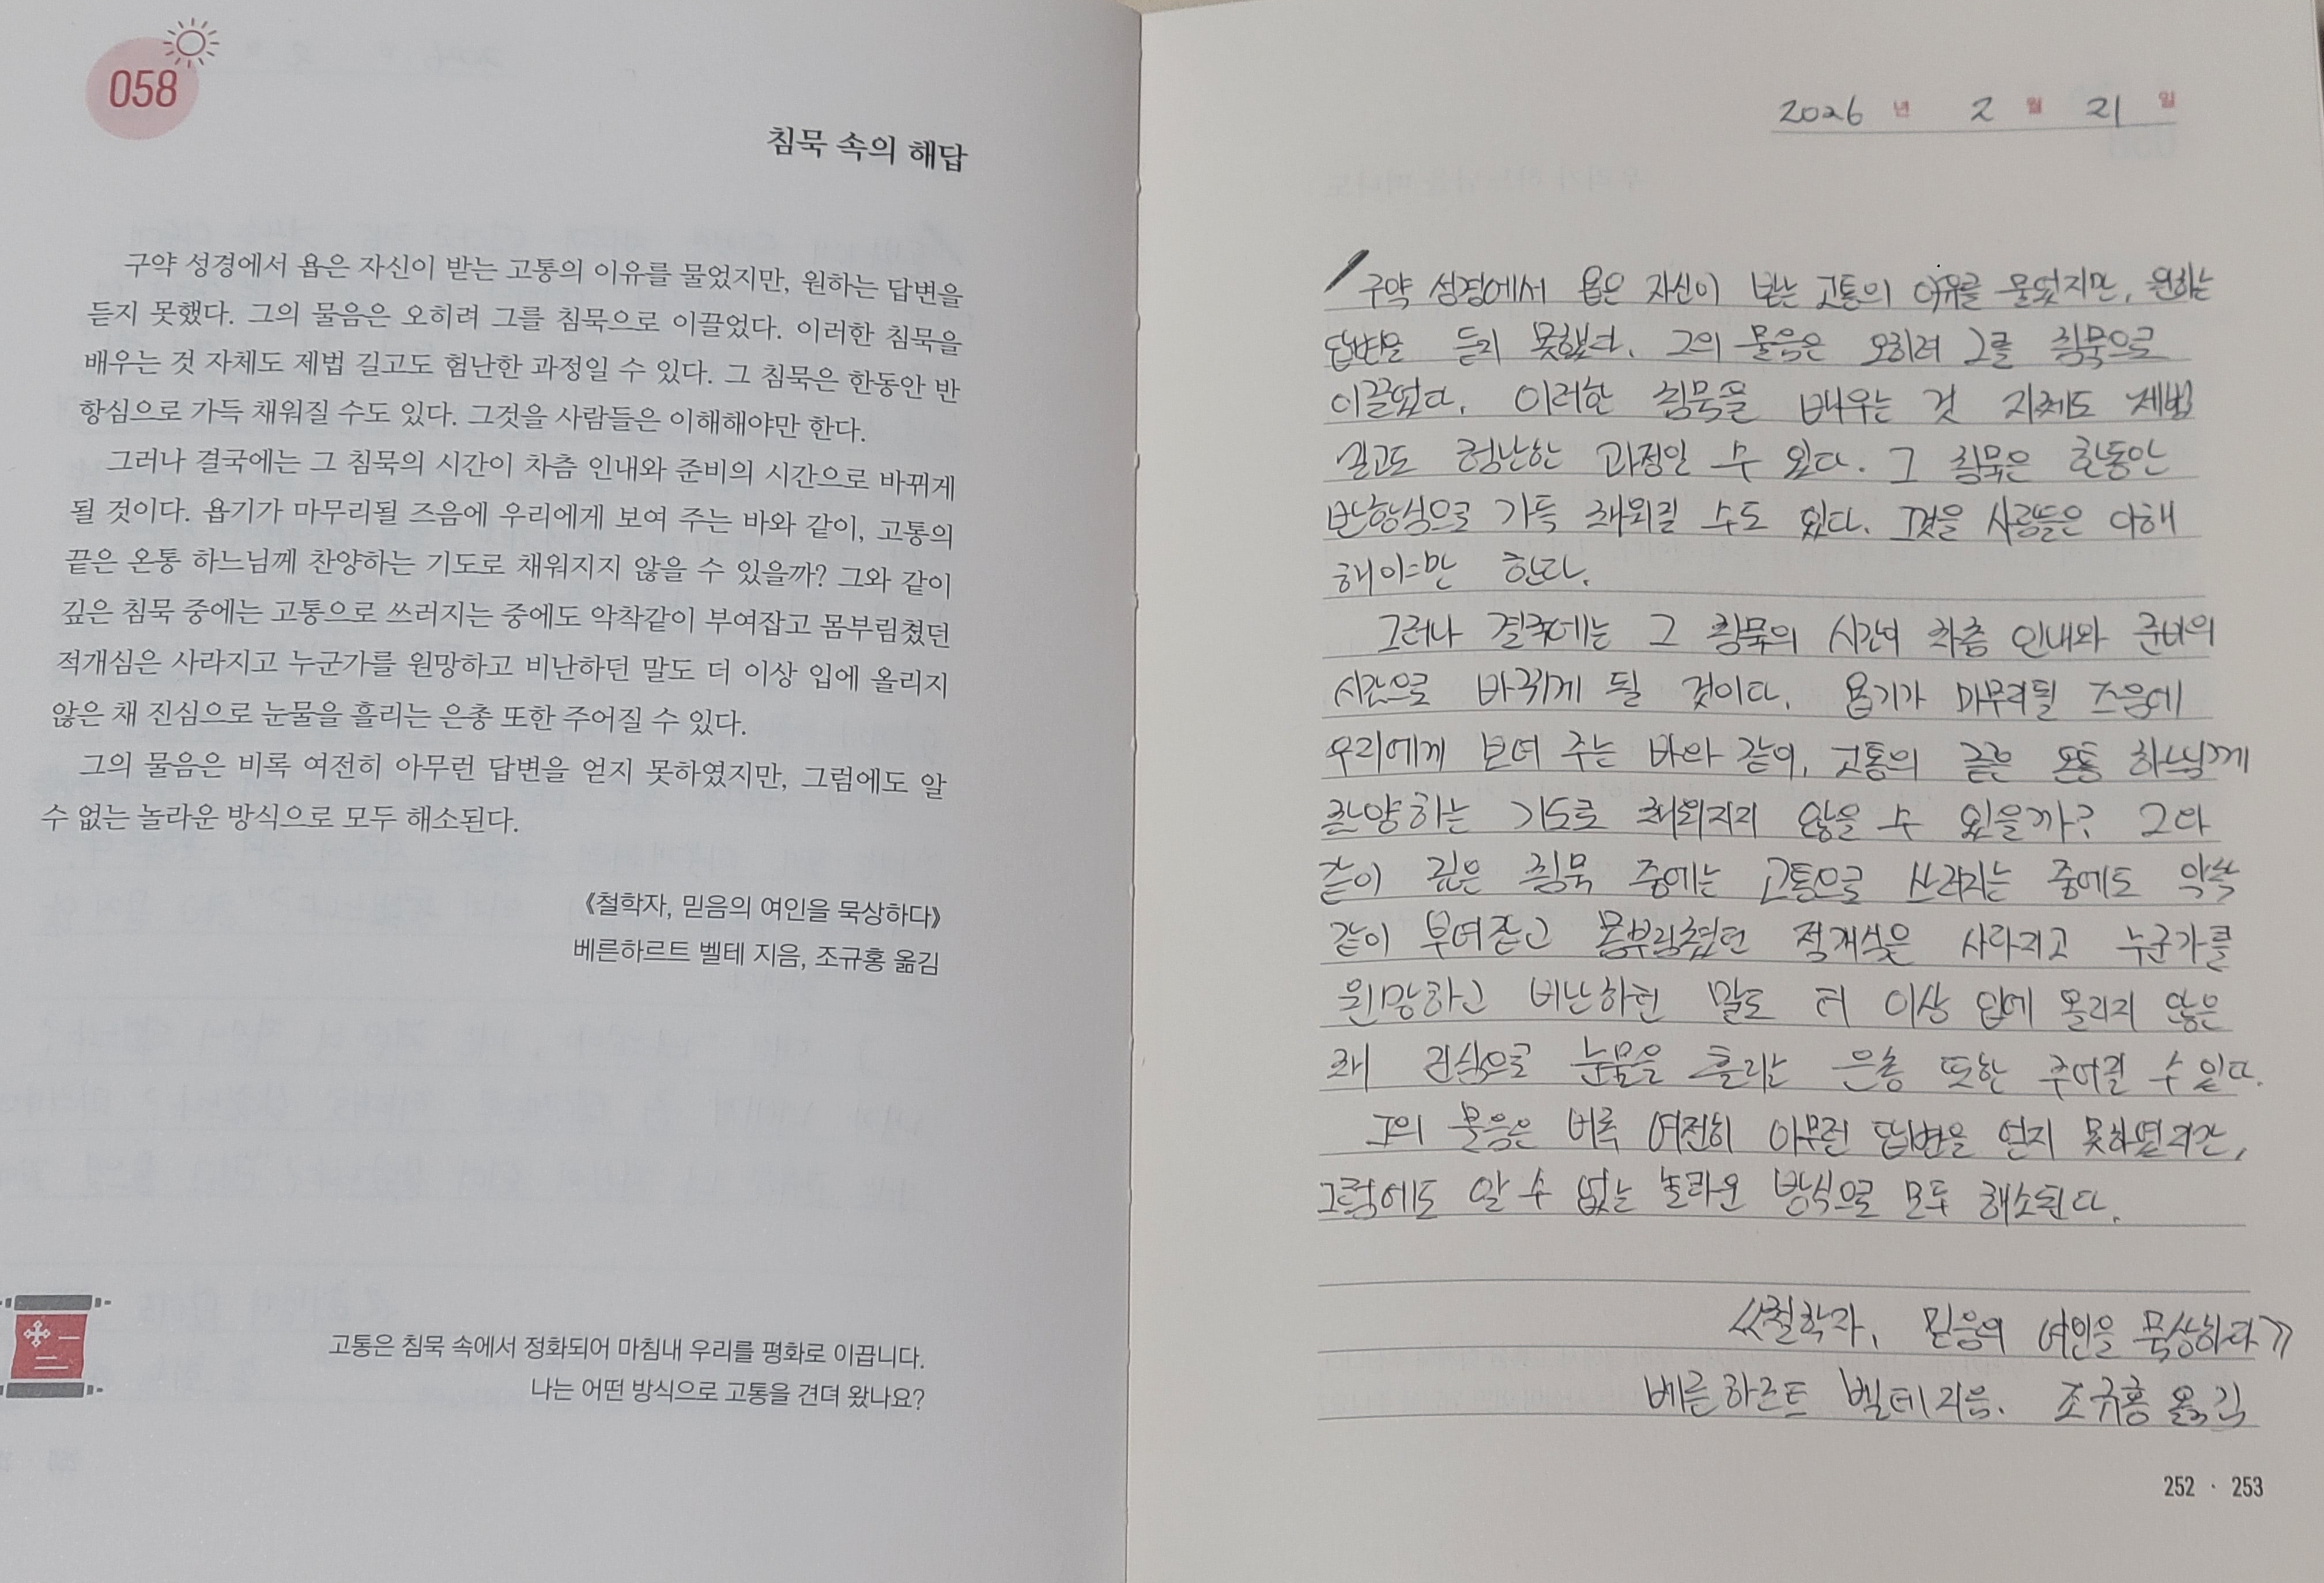 058
침묵 속의 해답
구약 성경에서 욥은 자신이 받는 고통의 이유를 물었지만, 원하는 답변을
듣지 못했다. 그의 물음은 오히려 그를 침묵으로 이끌었다. 이러한 침묵을
배우는 것 자체도 제법 길고도 험난한 과정일 수 있다. 그 침묵은 한동안 반
항심으로 가득 채워질 수도 있다. 그것을 사람들은 이해해야만 한다.
그러나 결국에는 그 침묵의 시간이 차츰 인내와 준비의 시간으로 바뀌게
될 것이다. 욥기가 마무리될 즈음에 우리에게 보여 주는 바와 같이, 고통의
끝은 온통 하느님께 찬양하는 기도로 채워지지 않을 수 있을까? 그와 같이
깊은 침묵 중에는 고통으로 쓰러지는 중에도 악착같이 부여잡고 몸부림쳤던
적개심은 사라지고 누군가를 원망하고 비난하던 말도 더 이상 입에 올리지
않은 채 진심으로 눈물을 흘리는 은총 또한 주어질 수 있다.
그의 물음은 비록 여전히 아무런 답변을 얻지 못하였지만, 그럼에도 알
수 없는 놀라운 방식으로 모두 해소된다.
《철학자, 믿음의 여인을 묵상하다》
베른하르트 벨테 지음, 조규홍 옮김
고통은 침묵 속에서 정화되어 마침내 우리를 평화로 이끕니다.
나는 어떤 방식으로 고통을 견뎌 왔나요?
2026 년 2 월 21 일
구약 성경에서 욥은 자신이 받는 고통의 이유를 물었지만, 원하는
답변을 듣지 못했다. 그의 물음은 오히려 그를 침묵으로
이끌었다. 이러한 침묵을 배우는 것 자체도 제법
길고도 험난한 과정일 수 있다. 그 침묵은 한동안
반항심으로 가득 채워질 수도 있다. 그것을 사람들은 이해
해야만 한다.
그러나 결국에는 그 침묵의 시간이 차츰 인내와 준비의
시간으로 바뀌게 될 것이다. 욥기가 마무리될 즈음에
우리에게 보여 주는 바와 같이, 고통의 끝은 온통 하느님께
찬양하는 기도로 채워지지 않을 수 있을까? 그와
같이 깊은 침묵 중에는 고통으로 쓰러지는 중에도 악착
같이 부여잡고 몸부림쳤던 적개심은 사라지고 누군가를
원망하고 비난하던 말도 더 이상 입에 올리지 않은
채 진심으로 눈물을 흘리는 은총 또한 주어질 수 있다.
그의 물음은 비록 여전히 아무런 답변을 얻지 못하였지만,
그럼에도 알 수 없는 놀라운 방식으로 모두 해소된다.
《철학자, 믿음의 여인을 묵상하다》
베른하르트 벨테 지음. 조규홍 옮김
252 · 253